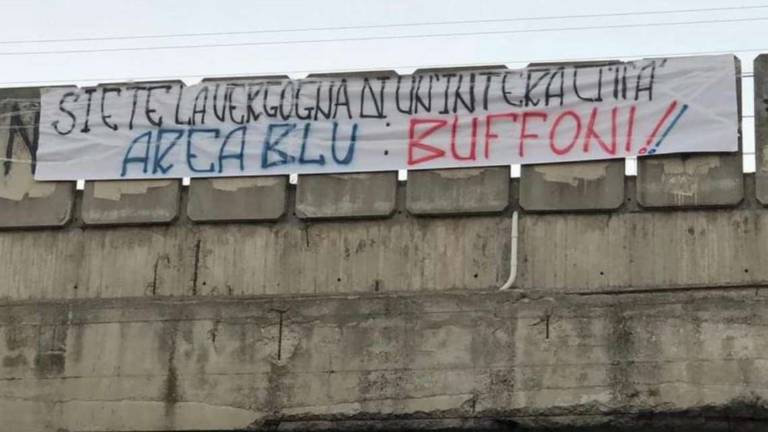 SIETE LA VERGOGNA DI UN'INTERA CITTA'
AREA BLU : BUFFONI!!